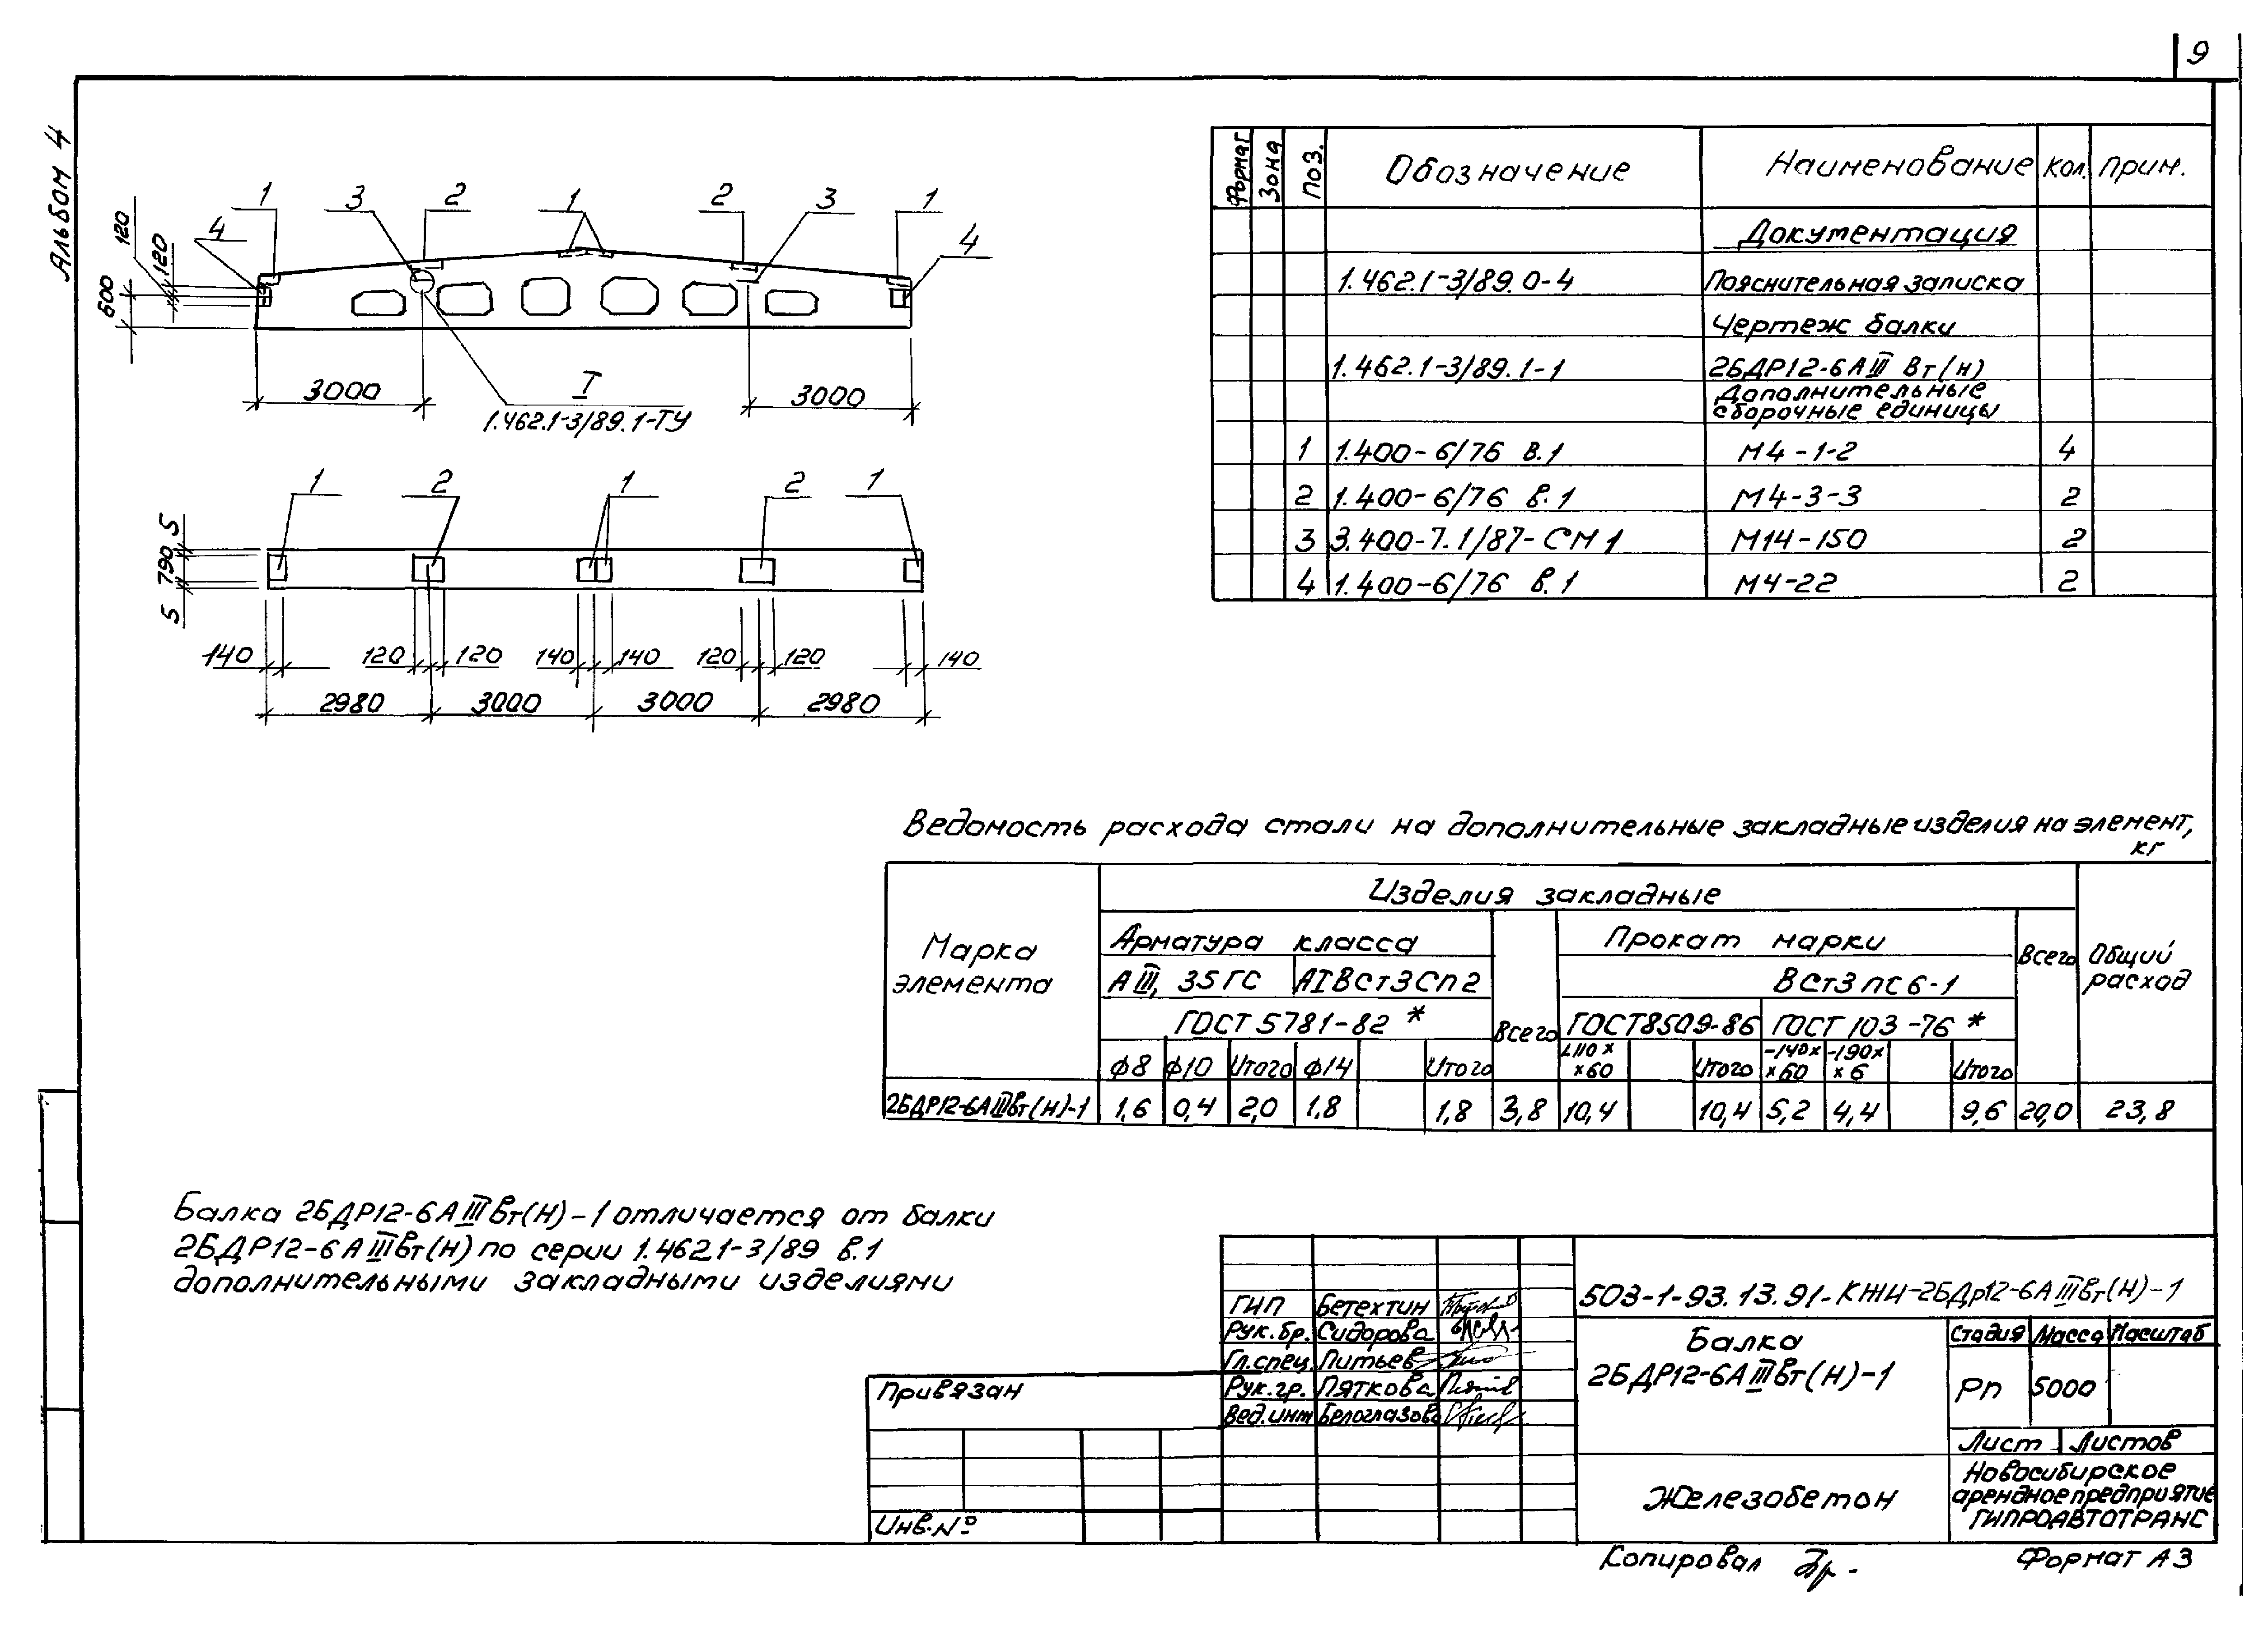 9
Альбом 4
1 3 2 1 2 3 1
4 4
120
120
600
3000 I 3000
1.462.1-3/89.1-ТУ
1 2 1 2 1
5
790
5
140 120 120 140 140 120 120 140
2980 3000 3000 2980
Формат Зона Поз. Обозначение Наименование Кол. Прим.
Документация
1.462.1-3/89.0-4 Пояснительная записка
Чертеж балки
1.462.1-3/89.1-1 2БДР12-6АIIIВт(н)
Дополнительные
сборочные единицы
1 1.400-6/76 в.1 М4-1-2 4
2 1.400-6/76 в.1 М4-3-3 2
3 3.400-7.1/87-СМ1 М14-150 2
4 1.400-6/76 в.1 М4-22 2
Ведомость расхода стали на дополнительные закладные изделия на элемент,
кг
Марка
элемента
Изделия закладные
Арматура класса Прокат марки Всего Общий
расход
АIII, 35ГС АIВСт3Сп2 ВСт3пс6-1
ГОСТ 5781-82* Всего ГОСТ8509-86 ГОСТ 103-76*
ф8 ф10 Итого ф14 Итого L110× Итого -140× -190× Итого
×60 ×60 ×6
2БДР12-6АIIIВт(Н)-1 1,6 0,4 2,0 1,8 1,8 3,8 10,4 10,4 5,2 4,4 9,6 20,0 23,8
Балка 2БДР12-6АIIIВт(Н)-1 отличается от балки
2БДР12-6АIIIВт(Н) по серии 1.462.1-3/89 в.1
дополнительными закладными изделиями
ГИП Бетехтин
Рук.бр. Сидорова
Гл.спец. Питьев
Рук.гр. Пяткова
Вед.инж Белоглазова
503-1-93.13.91-КЖИ-2БДр12-6АIIIВт(Н)-1
Балка
2БДР12-6АIIIВт(Н)-1
Стадия Масса Масштаб
РП 5000
Лист 1 Листов
Железобетон
Новосибирское
арендное предприятие
ГИПРОАВТОТРАНС
Привязан
Инв.№
Копировал
Формат А3